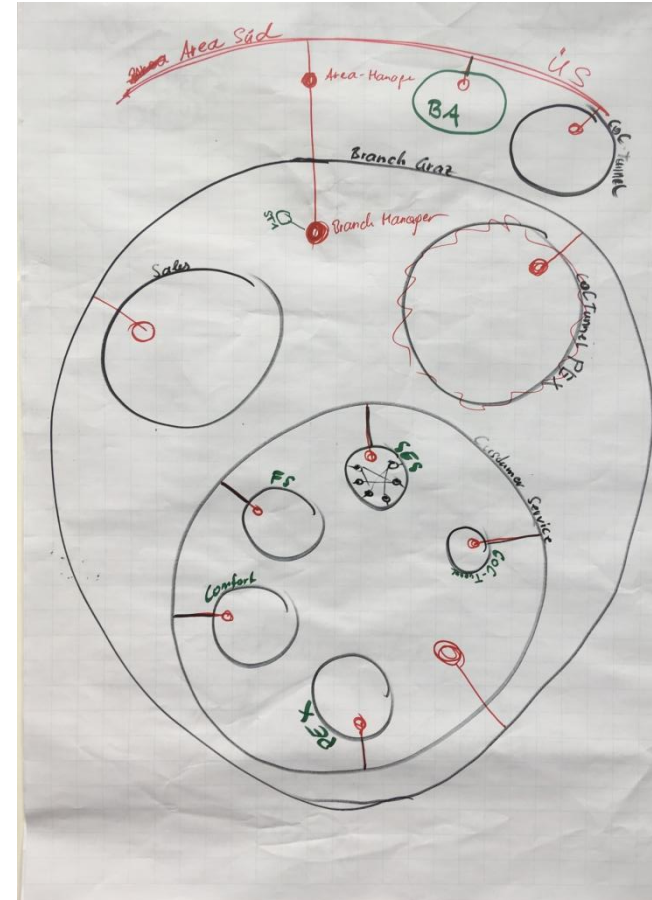 Area Süd
ÜS
Area-Manager
BA
CoC-Tunnel
Branch Graz
Branch Manager
Sales
CoC Tunnel PEX
Customer Service
SES
FS
CoC-Tunnel
Comfort
PEX